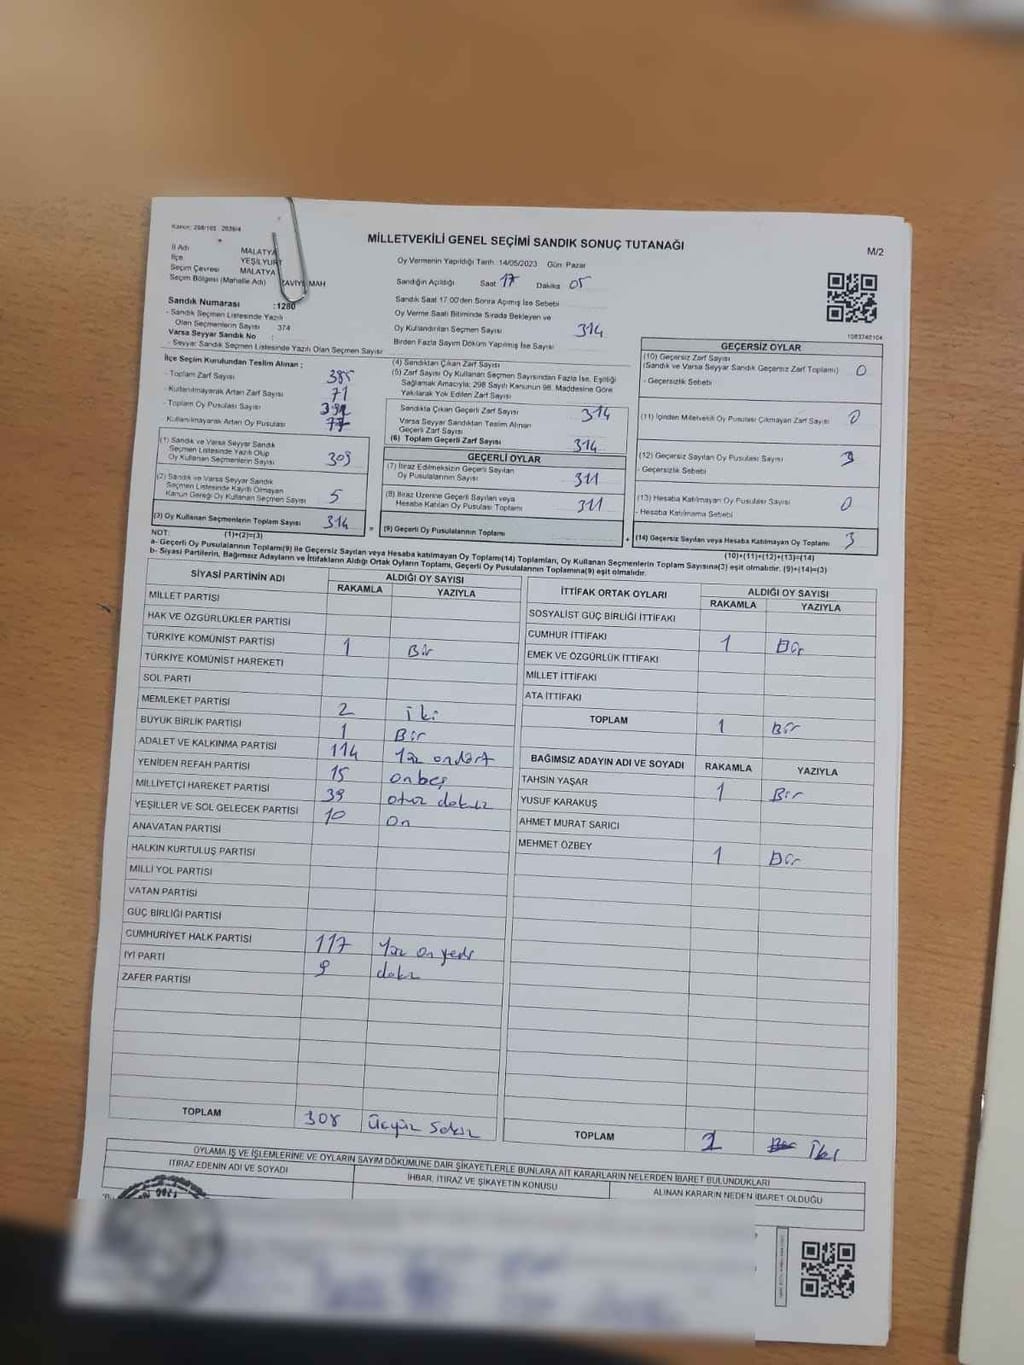 Kanun: 298/105 2839/4
MİLLETVEKİLİ GENEL SEÇİMİ SANDIK SONUÇ TUTANAĞI
M/2
İl Adı MALATYA
İlçe YEŞİLYURT
Seçim Çevresi MALATYA
Seçim Bölgesi (Mahalle Adı) MAH
Sandık Numarası :1280
- Sandık Seçmen Listesinde Yazılı
Olan Seçmenlerin Sayısı 374
Varsa Seyyar Sandık No :
- Seyyar Sandık Seçmen Listesinde Yazılı Olan Seçmen Sayısı
Oy Vermenin Yapıldığı Tarih :14/05/2023 Gün: Pazar
Sandığın Açıldığı Saat 17 Dakika 05
Sandık Saat 17:00'den Sonra Açılmış İse Sebebi
Oy Verme Saati Bitiminde Sırada Bekleyen ve
Oy Kullandırılan Seçmen Sayısı 314
Birden Fazla Sayım Döküm Yapılmış İse Sayısı
1083742104
İlçe Seçim Kurulundan Teslim Alınan :
- Toplam Zarf Sayısı 385
- Kullanılmayarak Artan Zarf Sayısı 71
- Toplam Oy Pusulası Sayısı
- Kullanılmayarak Artan Oy Pusulası 77
(1) Sandık ve Varsa Seyyar Sandık
Seçmen Listesinde Yazılı Olup
Oy Kullanan Seçmenlerin Sayısı 309
(2) Sandık ve Varsa Seyyar Sandık
Seçmen Listesinde Kayıtlı Olmayan
Kanun Gereği Oy Kullanan Seçmen Sayısı 5
(3) Oy Kullanan Seçmenlerin Toplam Sayısı 314
(4) Sandıktan Çıkan Zarf Sayısı
(5) Zarf Sayısı Oy Kullanan Seçmen Sayısından Fazla İse, Eşitliği
Sağlamak Amacıyla; 298 Sayılı Kanunun 98. Maddesine Göre
Yakılarak Yok Edilen Zarf Sayısı
Sandıkta Çıkan Geçerli Zarf Sayısı 314
Varsa Seyyar Sandıktan Teslim Alınan
Geçerli Zarf Sayısı
(6) Toplam Geçerli Zarf Sayısı 314
GEÇERLİ OYLAR
(7) İtiraz Edilmeksizin Geçerli Sayılan
Oy Pusulalarının Sayısı 311
(8) İtiraz Üzerine Geçerli Sayılan veya
Hesaba Katılan Oy Pusulası Toplamı 311
= (9) Geçerli Oy Pusulalarının Toplamı +
GEÇERSİZ OYLAR
(10) Geçersiz Zarf Sayısı
(Sandık ve Varsa Seyyar Sandık Geçersiz Zarf Toplamı) 0
- Geçersizlik Sebebi
(11) İçinden Milletvekili Oy Pusulası Çıkmayan Zarf Sayısı 0
(12) Geçersiz Sayılan Oy Pusulası Sayısı 3
- Geçersizlik Sebebi
(13) Hesaba Katılmayan Oy Pusulası Sayısı 0
- Hesaba Katılmama Sebebi
(14) Geçersiz Sayılan veya Hesaba Katılmayan Oy Toplamı 3
NOT: (1)+(2)=(3) (10)+(11)+(12)+(13)=(14)
a- Geçerli Oy Pusulalarının Toplamı(9) ile Geçersiz Sayılan veya Hesaba katılmayan Oy Toplamı(14) Toplamları, Oy Kullanan Seçmenlerin Toplam Sayısına(3) eşit olmalıdır. (9)+(14)=(3)
b- Siyasi Partilerin, Bağımsız Adayların ve İttifakların Aldığı Ortak Oyların Toplamı, Geçerli Oy Pusulalarının Toplamına(9) eşit olmalıdır.
SİYASİ PARTİNİN ADI ALDIĞI OY SAYISI
RAKAMLA YAZIYLA
MİLLET PARTİSİ
HAK VE ÖZGÜRLÜKLER PARTİSİ
TÜRKİYE KOMÜNİST PARTİSİ 1 Bir
TÜRKİYE KOMÜNİST HAREKETİ
SOL PARTİ
MEMLEKET PARTİSİ 2 iki
BÜYÜK BİRLİK PARTİSİ 1 Bir
ADALET VE KALKINMA PARTİSİ 114 Yüz ondört
YENİDEN REFAH PARTİSİ 15 onbeş
MİLLİYETÇİ HAREKET PARTİSİ 39 otuz dokuz
YEŞİLLER VE SOL GELECEK PARTİSİ 10 On
ANAVATAN PARTİSİ
HALKIN KURTULUŞ PARTİSİ
MİLLİ YOL PARTİSİ
VATAN PARTİSİ
GÜÇ BİRLİĞİ PARTİSİ
CUMHURİYET HALK PARTİSİ 117 Yüz on yedi
İYİ PARTİ 9 dokuz
ZAFER PARTİSİ
TOPLAM 308 Üçyüz Sekiz
İTTİFAK ORTAK OYLARI ALDIĞI OY SAYISI
RAKAMLA YAZIYLA
SOSYALİST GÜÇ BİRLİĞİ İTTİFAKI
CUMHUR İTTİFAKI 1 Bir
EMEK VE ÖZGÜRLÜK İTTİFAKI
MİLLET İTTİFAKI
ATA İTTİFAKI
TOPLAM 1 Bir
BAĞIMSIZ ADAYIN ADI VE SOYADI RAKAMLA YAZIYLA
TAHSİN YAŞAR 1 Bir
YUSUF KARAKUŞ
AHMET MURAT SARICI
MEHMET ÖZBEY 1 Bir
TOPLAM 2 İki
OYLAMA İŞ VE İŞLEMLERİNE VE OYLARIN SAYIM DÖKÜMÜNE DAİR ŞİKAYETLERLE BUNLARA AİT KARARLARIN NELERDEN İBARET BULUNDUKLARI
İTİRAZ EDENİN ADI VE SOYADI İHBAR, İTİRAZ VE ŞİKAYETİN KONUSU ALINAN KARARIN NEDEN İBARET OLDUĞU